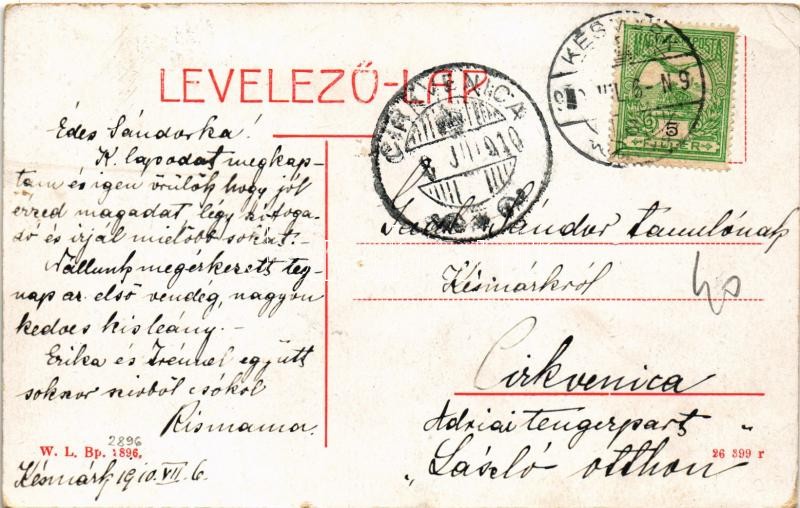 LEVELEZŐ-LAP
CIRKVENICA
8 JUL 910
KÉSMÁRK
MAGYAR POSTA
5
FILLER
Édes Sándorka!
K. lapodat megkap-
tam és igen örülök hogy jól
érzed magadat, légy szófoga-
dó és írjál mielőbb sokat. -
Nállunk megérkezett teg-
nap az első vendég, nagyon
kedves kis leány. -
Erika és Irénnel együtt
sokszor szívből csókol
Kismama.
2896
W. L. Bp. 1896.
Késmárk 1910. VII. 6.
Sándor tanulónak
Késmárkról
40
Cirkvenica
Adriai tengerpart
"László otthon"
26 399 r